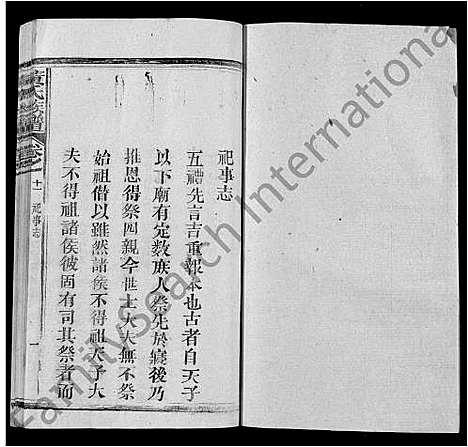 祀事志
五禮先言吉重報本也古者自天子
以下廟有定數族人祭先於寢後乃
推恩得祭四親今世士大夫無不祭
始祖僭以雖然諸侯不得祖天子大
夫不得祖諸侯彼固有司其祭者而
黃氏族譜
卷之
十一
祀事志
一
FamilySearch International